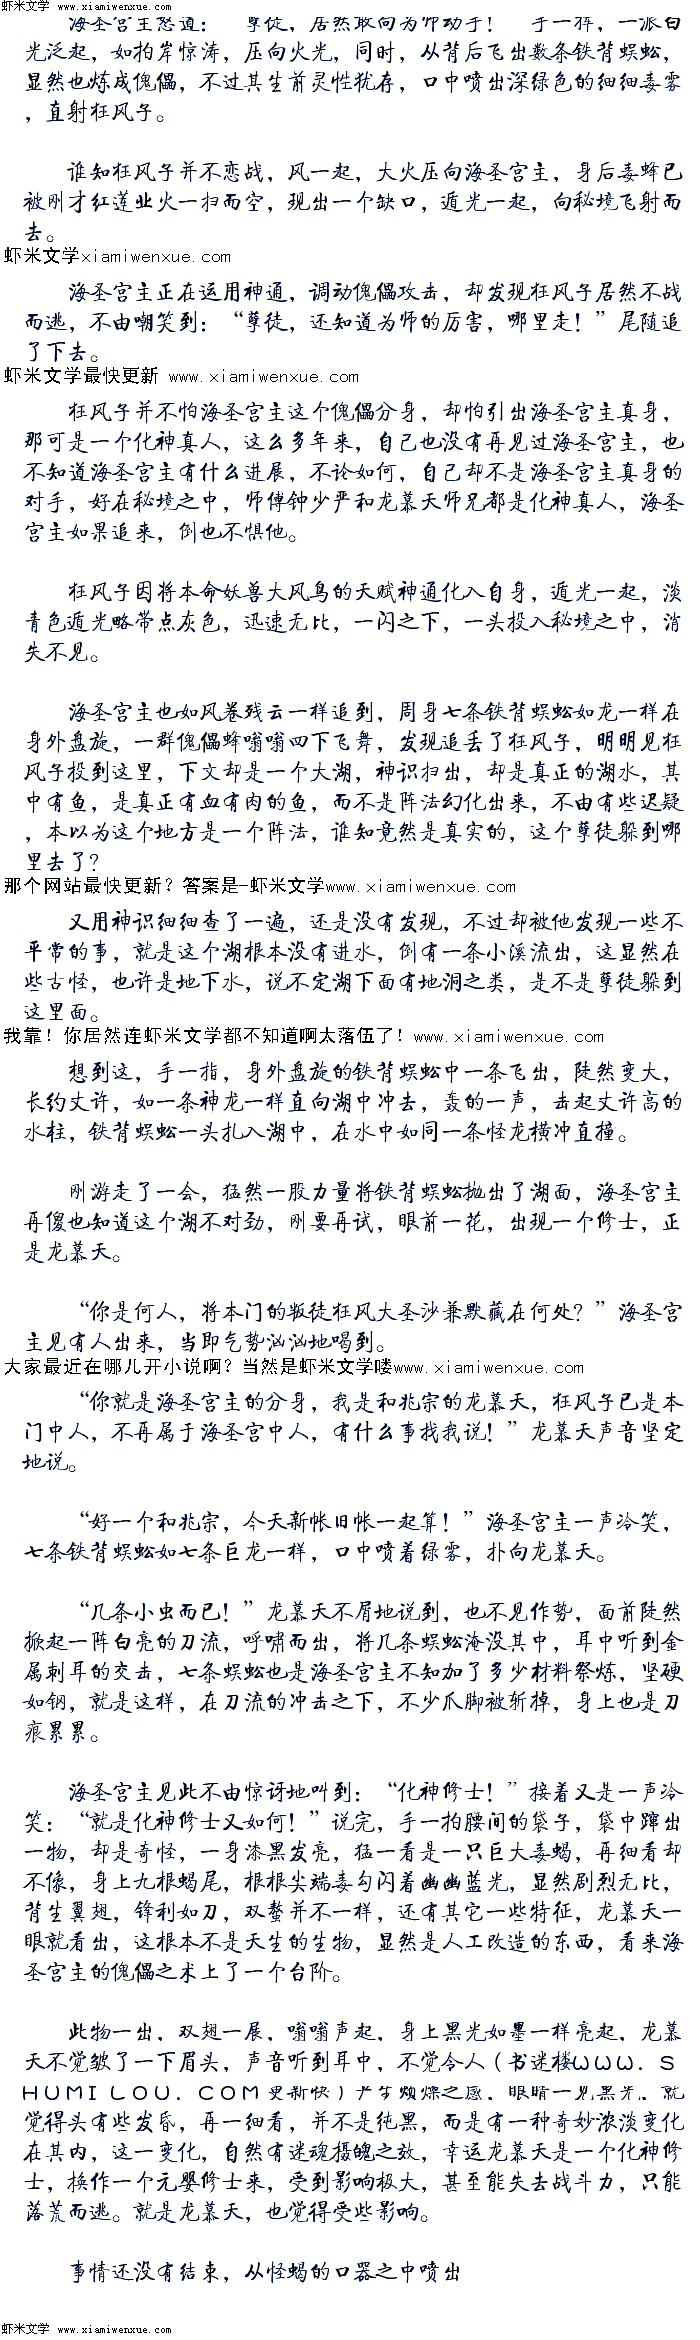 虾米文学 www.xiamiwenxue.com
海圣宫主怒道：“孽徒，居然敢向为师动手！”手一挥，一派白
光泛起，如拍岸惊涛，压向火光，同时，从背后飞出数条铁背蜈蚣，
显然也炼成傀儡，不过其生前灵性犹存，口中喷出深绿色的细细毒雾
，直射狂风子。
谁知狂风子并不恋战，风一起，大火压向海圣宫主，身后毒蜂已
被刚才红莲业火一扫而空，现出一个缺口，遁光一起，向秘境飞射而
去。
虾米文学xiamiwenxue.com
海圣宫主正在运用神通，调动傀儡攻击，却发现狂风子居然不战
而逃，不由嘲笑到：“孽徒，还知道为师的厉害，哪里走！”尾随追
了下去。
虾米文学最快更新 www.xiamiwenxue.com
狂风子并不怕海圣宫主这个傀儡分身，却怕引出海圣宫主真身，
那可是一个化神真人，这么多年来，自己也没有再见过海圣宫主，也
不知道海圣宫主有什么进展，不论如何，自己却不是海圣宫主真身的
对手，好在秘境之中，师傅钟少严和龙慕天师兄都是化神真人，海圣
宫主如果追来，倒也不惧他。
狂风子因将本命妖兽大风鸟的天赋神通化入自身，遁光一起，淡
青色遁光略带点灰色，迅速无比，一闪之下，一头投入秘境之中，消
失不见。
海圣宫主也如风卷残云一样追到，周身七条铁背蜈蚣如龙一样在
身外盘旋，一群傀儡蜂嗡嗡四下飞舞，发现追丢了狂风子，明明见狂
风子投到这里，下文却是一个大湖，神识扫出，却是真正的湖水，其
中有鱼，是真正有血有肉的鱼，而不是阵法幻化出来，不由有些迟疑
，本以为这个地方是一个阵法，谁知竟然是真实的，这个孽徒躲到哪
里去了？
那个网站最快更新？答案是-虾米文学www.xiamiwenxue.com
又用神识细细查了一遍，还是没有发现，不过却被他发现一些不
平常的事，就是这个湖根本没有进水，倒有一条小溪流出，这显然在
些古怪，也许是地下水，说不定湖下面有地洞之类，是不是孽徒躲到
这里面。
我靠！你居然连虾米文学都不知道啊太落伍了！www.xiamiwenxue.com
想到这，手一指，身外盘旋的铁背蜈蚣中一条飞出，陡然变大，
长约丈许，如一条神龙一样直向湖中冲去，轰的一声，击起丈许高的
水柱，铁背蜈蚣一头扎入湖中，在水中如同一条怪龙横冲直撞。
刚游走了一会，猛然一股力量将铁背蜈蚣抛出了湖面，海圣宫主
再傻也知道这个湖不对劲，刚要再试，眼前一花，出现一个修士，正
是龙慕天。
“你是何人，将本门的叛徒狂风大圣沙兼默藏在何处？”海圣宫
主见有人出来，当即气势汹汹地喝到。
大家最近在哪儿开小说啊？当然是虾米文学喽www.xiamiwenxue.com
“你就是海圣宫主的分身，我是和兆宗的龙慕天，狂风子已是本
门中人，不再属于海圣宫中人，有什么事找我说！”龙慕天声音坚定
地说。
“好一个和兆宗，今天新帐旧帐一起算！”海圣宫主一声冷笑，
七条铁背蜈蚣如七条巨龙一样，口中喷着绿雾，扑向龙慕天。
“几条小虫而已！”龙慕天不屑地说到，也不见作势，面前陡然
掀起一阵白亮的刀流，呼啸而出，将几条蜈蚣淹没其中，耳中听到金
属刺耳的交击，七条蜈蚣也是海圣宫主不知加了多少材料祭炼，坚硬
如钢，就是这样，在刀流的冲击之下，不少爪脚被斩掉，身上也是刀
痕累累。
海圣宫主见此不由惊讶地叫到：“化神修士！”接着又是一声冷
笑：“就是化神修士又如何！”说完，手一拍腰间的袋子，袋中蹿出
一物，却是奇怪，一身漆黑发亮，猛一看是一只巨大毒蝎，再细看却
不像，身上九根蝎尾，根根尖端毒勾闪着幽幽蓝光，显然剧烈无比，
背生翼翅，锋利如刀，双螯并不一样，还有其它一些特征，龙慕天一
眼就看出，这根本不是天生的生物，显然是人工改造的东西，看来海
圣宫主的傀儡之术上了一个台阶。
此物一出，双翅一展，嗡嗡声起，身上黑光如墨一样亮起，龙慕
天不觉皱了一下眉头，声音听到耳中，不觉令人（书迷楼ＷＷＷ．Ｓ
ＨＵＭＩＬＯＵ．ＣＯＭ更新快）产生烦燥之感，眼睛一见黑光，就
觉得头有些发昏，再一细看，并不是纯黑，而是有一种奇妙浓淡变化
在其内，这一变化，自然有迷魂摄魄之效，幸运龙慕天是一个化神修
士，换作一个元婴修士来，受到影响极大，甚至能失去战斗力，只能
落荒而逃。就是龙慕天，也觉得受些影响。
事情还没有结束，从怪蝎的口器之中喷出
虾米文学 www.xiamiwenxue.com